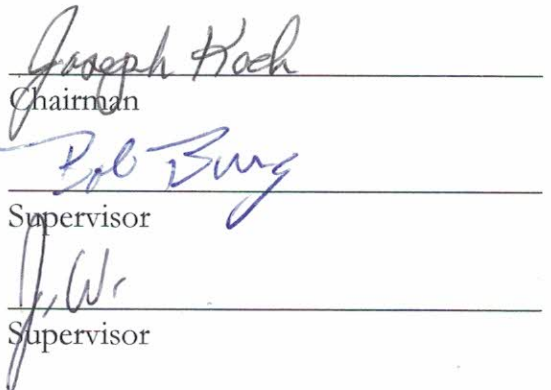 Joseph Koch
Chairman
Bob
Supervisor
J. W.
Supervisor